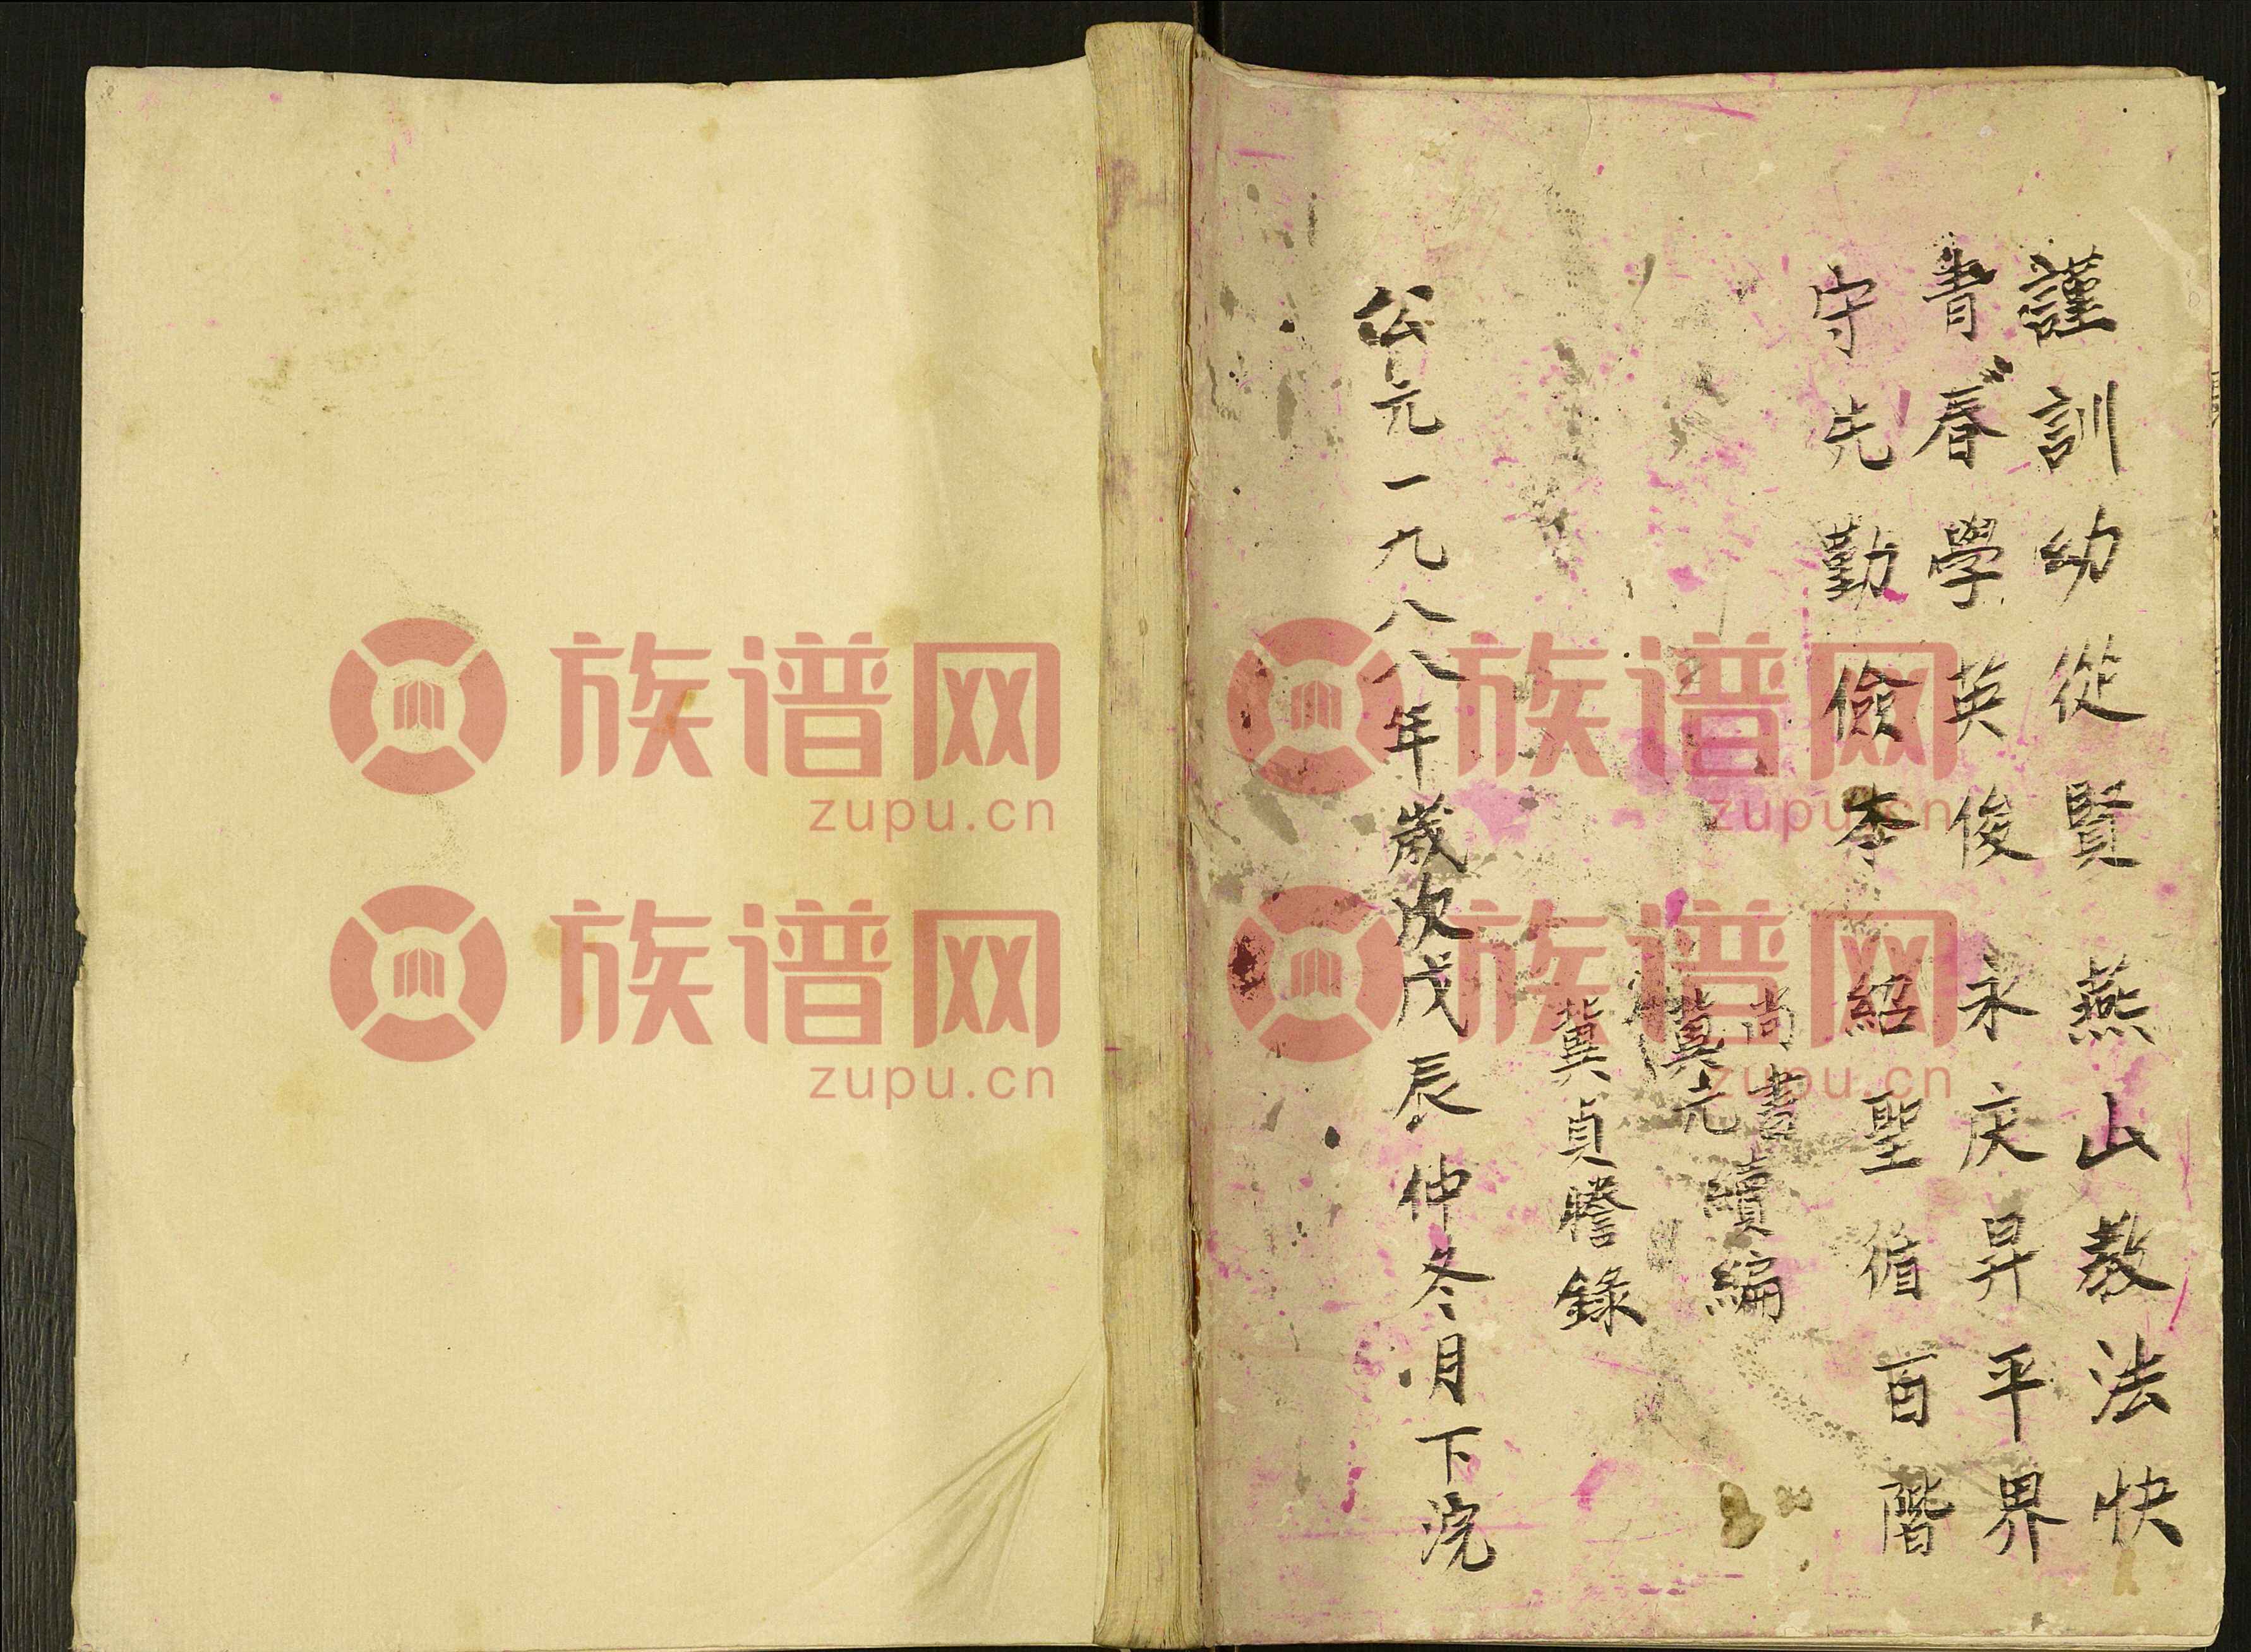 謹訓幼從賢 燕山教法快
青春學英俊 永庆昇平界
守先勤儉李 紹聖循百階
尚書
冀元 續編
冀貞謄錄
公元一九八八年歲次戊辰仲冬月下浣
族谱网
zupu.cn
族谱网
zupu.cn
族谱网
zupu.cn
族谱网
zupu.cn